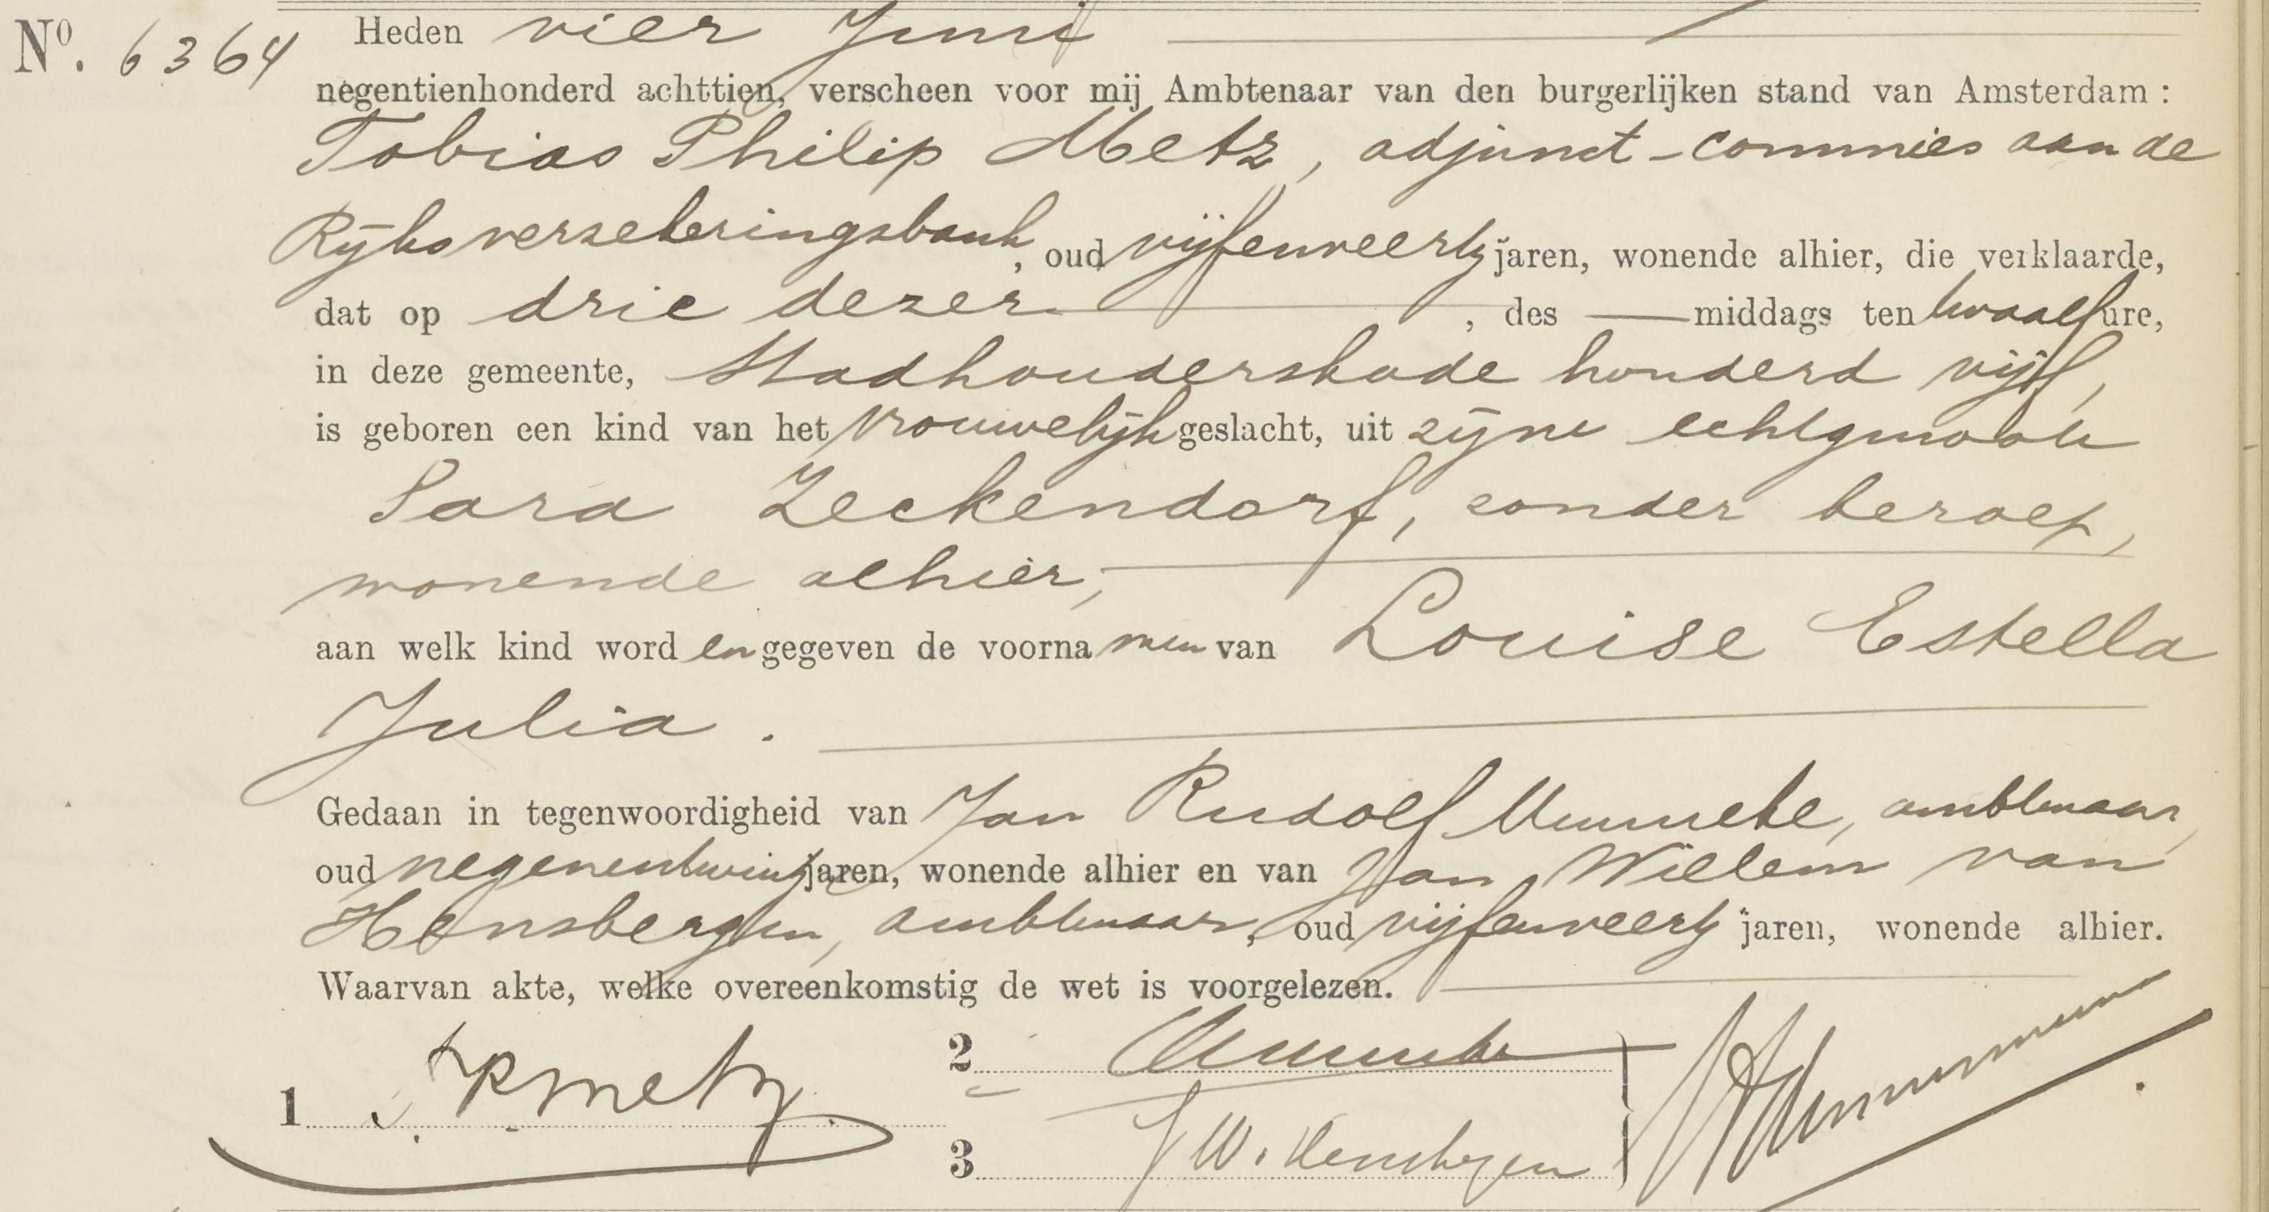 Nº. 6364 Heden vier Juni
negentienhonderd achttien, verscheen voor mij Ambtenaar van den burgerlijken stand van Amsterdam:
Tobias Philip Metz, adjunct-commies aan de
Rijksverzekeringsbank, oud vijfenveertig jaren, wonende alhier, die verklaarde,
dat op drie dezer, des — middags ten twaalf ure,
in deze gemeente, Stadhouderskade honderd vijf,
is geboren een kind van het vrouwelijk geslacht, uit zijne echtgenoote
Sara Zeckendorf, zonder beroep,
wonende alhier,
aan welk kind worden gegeven de voornamen van Louise Estella
Julia.
Gedaan in tegenwoordigheid van Jan Rudolf, ambtenaar,
oud negenentwintig jaren, wonende alhier en van Jan Willem van
Hensbergen, ambtenaar, oud vijfenveertig jaren, wonende alhier.
Waarvan akte, welke overeenkomstig de wet is voorgelezen.
1 T.P. Metz
2
3 J W. v Hensbergen